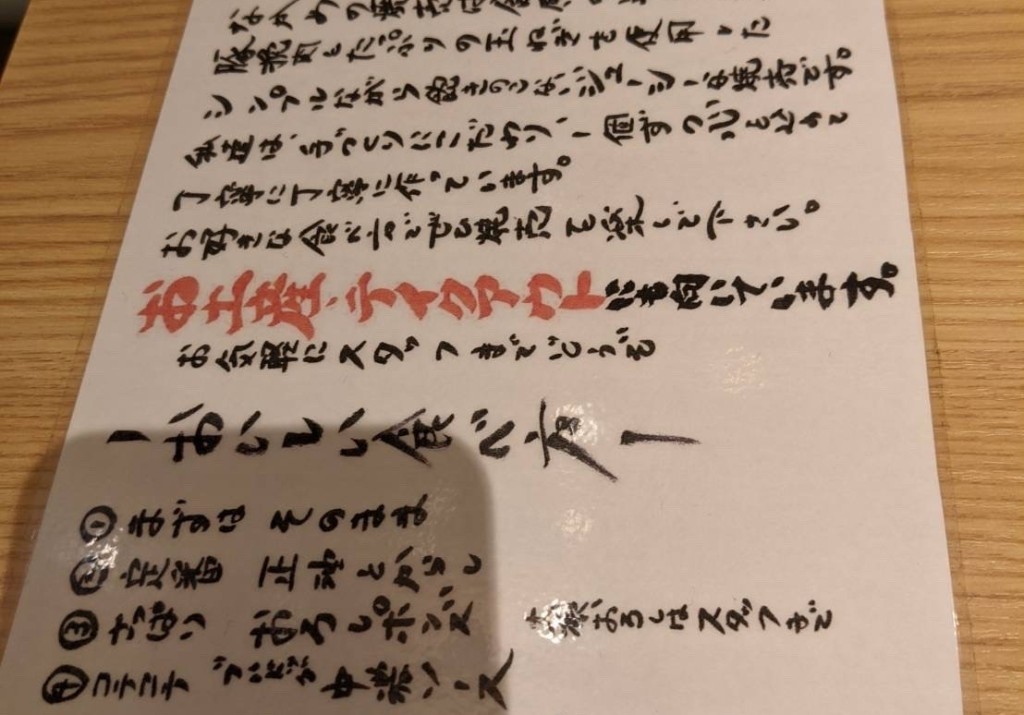 なかめの焼売は
豚挽肉とたっぷりの玉ねぎを使用した
シンプルながら飽きのこないジューシーな焼売です。
製造は、手づくりにこだわり、1個ずつ心を込めて
丁寧に丁寧に作っています。
お好きな食べ方でぜひ焼売を楽しんで下さい。
お土産、テイクアウトにも向いています。
お気軽にスタッフまでどうぞ
ーおいしい食べ方ー
① まずは そのまま
② 定番 正油とからし
③ さっぱり おろしポンズ 大根おろしはスタッフまで
④ コテコテ 中濃ソース